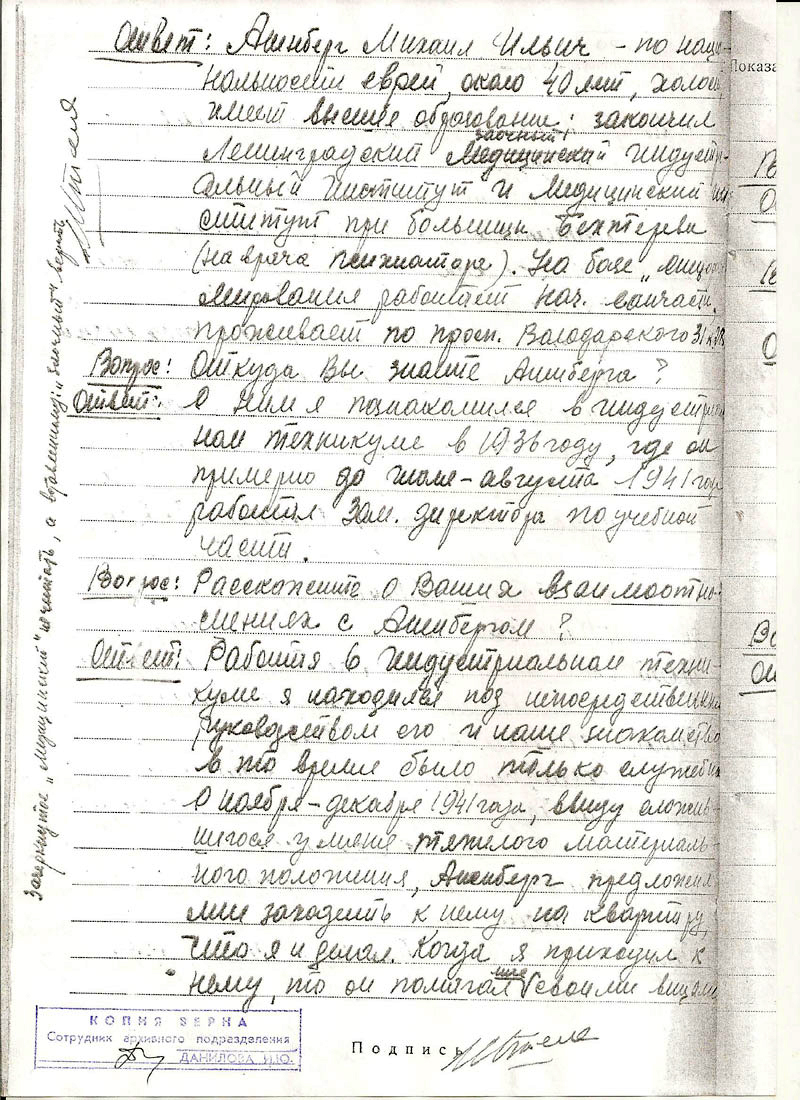 Ответ: Аненберг Михаил Ильич - по наци-
нальности еврей, около 40 лет, холост,
имеет высшее образование: закончил
заочный
Ленинградский Медицинский индустри-
альный институт и Медицинский ин-
ститут при больнице Бехтерева
(на врача психиатора). На базе
работает нач. санчасти,
проживает по просп. Володарского 31
Вопрос: Откуда Вы знаете Аненберга?
Ответ: С ним я познакомился в индустриаль-
ном техникуме в 1936 году, где он
примерно до июля-августа 1941 года
работал Зам. директора по учебной
части.
Вопрос: Расскажите о Ваших взаимоотно-
шениях с Аненбергом?
Ответ: Работая в Индустриальном техни-
куме я находился под непосредственным
руководством его и наше знакомство
в то время было только служебным
С ноября-декабря 1941 года, ввиду сложив-
шегося у меня тяжелого материаль-
ного положения, Аненберг предложил
мне заходить к нему на квартиру,
что я и делал. Когда я приходил к
мне
нему, то он помогал своими вещами
Зачеркнутое „Медицинский" не читать, а вставленному: „заочный" верить
Подпись
КОПИЯ ВЕРНА
Сотрудник архивного подразделения
ДАНИЛОВА Н.Ю.
Показа